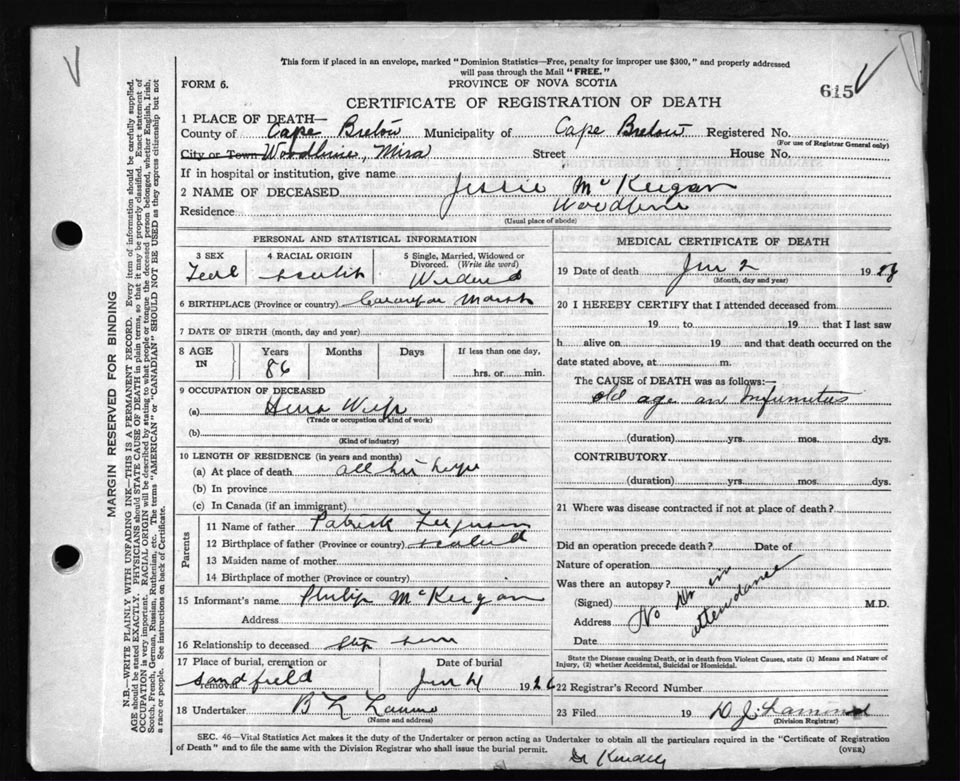 This form if placed in an envelope, marked "Dominion Statistics—Free, penalty for improper use $300," and properly addressed
will pass through the Mail "FREE."
FORM 6.
PROVINCE OF NOVA SCOTIA
615
CERTIFICATE OF REGISTRATION OF DEATH
1 PLACE OF DEATH—
County of Cape Breton Municipality of Cape Breton Registered No.
(For use of Registrar General only)
City or Town Woodbine, Mira Street House No.
If in hospital or institution, give name
2 NAME OF DECEASED Jessie McKeigan
Residence Woodbine
(Usual place of abode)
PERSONAL AND STATISTICAL INFORMATION
3 SEX 4 RACIAL ORIGIN 5 Single, Married, Widowed or
Divorced. (Write the word)
6 BIRTHPLACE (Province or country) Marsh
7 DATE OF BIRTH (month, day and year)
8 AGE IN Years Months Days If less than one day,
86 hrs. or min.
9 OCCUPATION OF DECEASED
(a)
(Trade or occupation of kind of work)
(b)
(Kind of industry)
10 LENGTH OF RESIDENCE (in years and months)
(a) At place of death all
(b) In province
(c) In Canada (if an immigrant)
Parents
11 Name of father Patrick Ferguson
12 Birthplace of father (Province or country)
13 Maiden name of mother
14 Birthplace of mother (Province or country)
15 Informant's name Philip McKeigan
Address
16 Relationship to deceased
17 Place of burial, cremation or Date of burial
removal Sandfield 4 1926
18 Undertaker
(Name and address)
MEDICAL CERTIFICATE OF DEATH
19 Date of death 2 19
(Month, day and year)
20 I HEREBY CERTIFY that I attended deceased from
19 to 19 that I last saw
h alive on 19 and that death occurred on the
date stated above, at m.
The CAUSE of DEATH was as follows:—
old age
(duration) yrs. mos. dys.
CONTRIBUTORY
(duration) yrs. mos. dys.
21 Where was disease contracted if not at place of death?
Did an operation precede death? Date of
Nature of operation
Was there an autopsy?
(Signed) M.D.
Address
Date
No Dr in
attendance
State the Disease causing Death, or in death from Violent Causes, state (1) Means and Nature of
Injury, (2) whether Accidental, Suicidal or Homicidal.
22 Registrar's Record Number
23 Filed 19
(Division Registrar)
SEC. 46—Vital Statistics Act makes it the duty of the Undertaker or person acting as Undertaker to obtain all the particulars required in the "Certificate of Registration
of Death" and to file the same with the Division Registrar who shall issue the burial permit. (OVER)
MARGIN RESERVED FOR BINDING
N.B.—WRITE PLAINLY WITH UNFADING INK—THIS IS A PERMANENT RECORD. Every item of information should be carefully supplied.
AGE should be stated EXACTLY. PHYSICIANS should STATE CAUSE OF DEATH in plain terms, so that it may be properly classified. Exact statement of
OCCUPATION is very important. RACIAL ORIGIN will be described by stating to what people or tongue the deceased person belonged, whether English, Irish,
Scotch, French, German, Russian, Ruthenian, etc. The terms "AMERICAN" or "CANADIAN" SHOULD NOT BE USED as they express citizenship but not
a race or people. See instructions on back of Certificate.